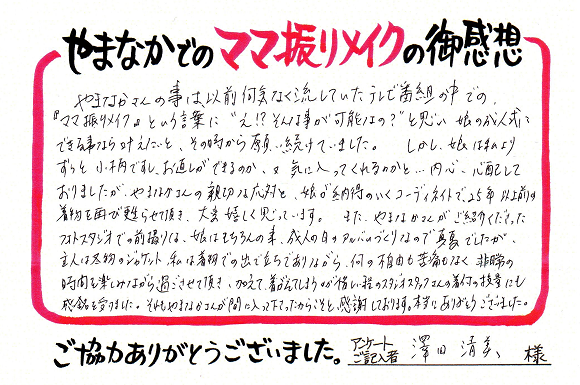 やまなかでのママ振リメイクの御感想
やまなかさんの事は以前何気なく流していたテレビ番組の中での、
『ママ振りメイク』という言葉に"え!?そんな事が可能なの?"と思い 娘の成人式に
できる事なら叶えたいと、その時から願い続けていました。 しかし、娘は私より
ずっと小柄ですし、お直しができるのか、又気に入ってくれるのかと… 内心、心配して
おりましたが、やまなかさんの親切な応対と、娘も納得のいくコーディネイトで、25年以上前の
着物を再び甦らせて頂き、大変嬉しく思っています。 また、やまなかさんがご紹介くださった
フォトスタジオでの前撮りは、娘はもちろんの事、成人のアルバムづくりなので真夏でしたが、
主人は冬物のジャケット、私は着物での出で立ちでありながら、何の不自由も苦痛もなく 非常の
時間を楽しみながら過ごさせて頂き、加えて、着崩れてしまうのが惜い程のスタジオスタッフさんの着付の技量にも
感銘を受けました。それもやまなかさんが間に入って下さったからこそと、感謝しております。本当にありがとうございました。
ご協力ありがとうございました。 アンケートご記入者 澤田 清美 様